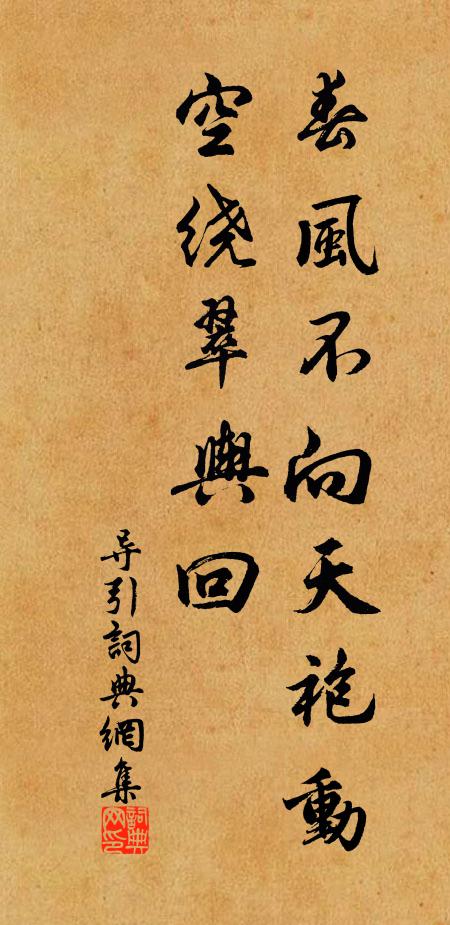 春風不向天袍動
空绕翠輿回
导引詞典網集
詞典
网印